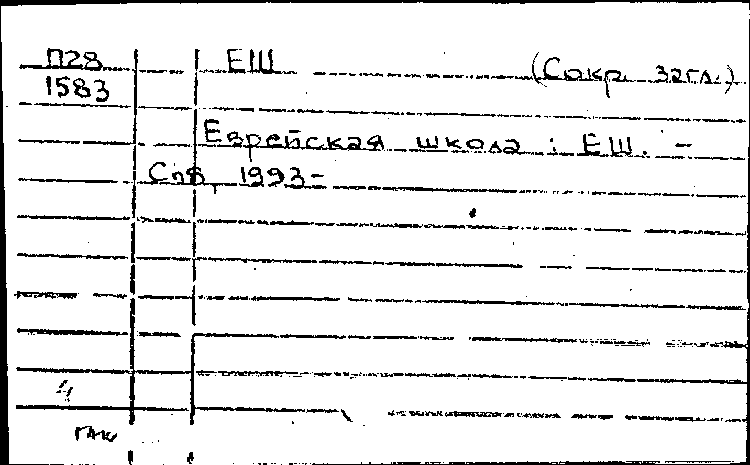 П28 ЕШ (Сокр. загл.)
1583
Еврейская школа : ЕШ. –
Спб, 1993–
4
ГАК